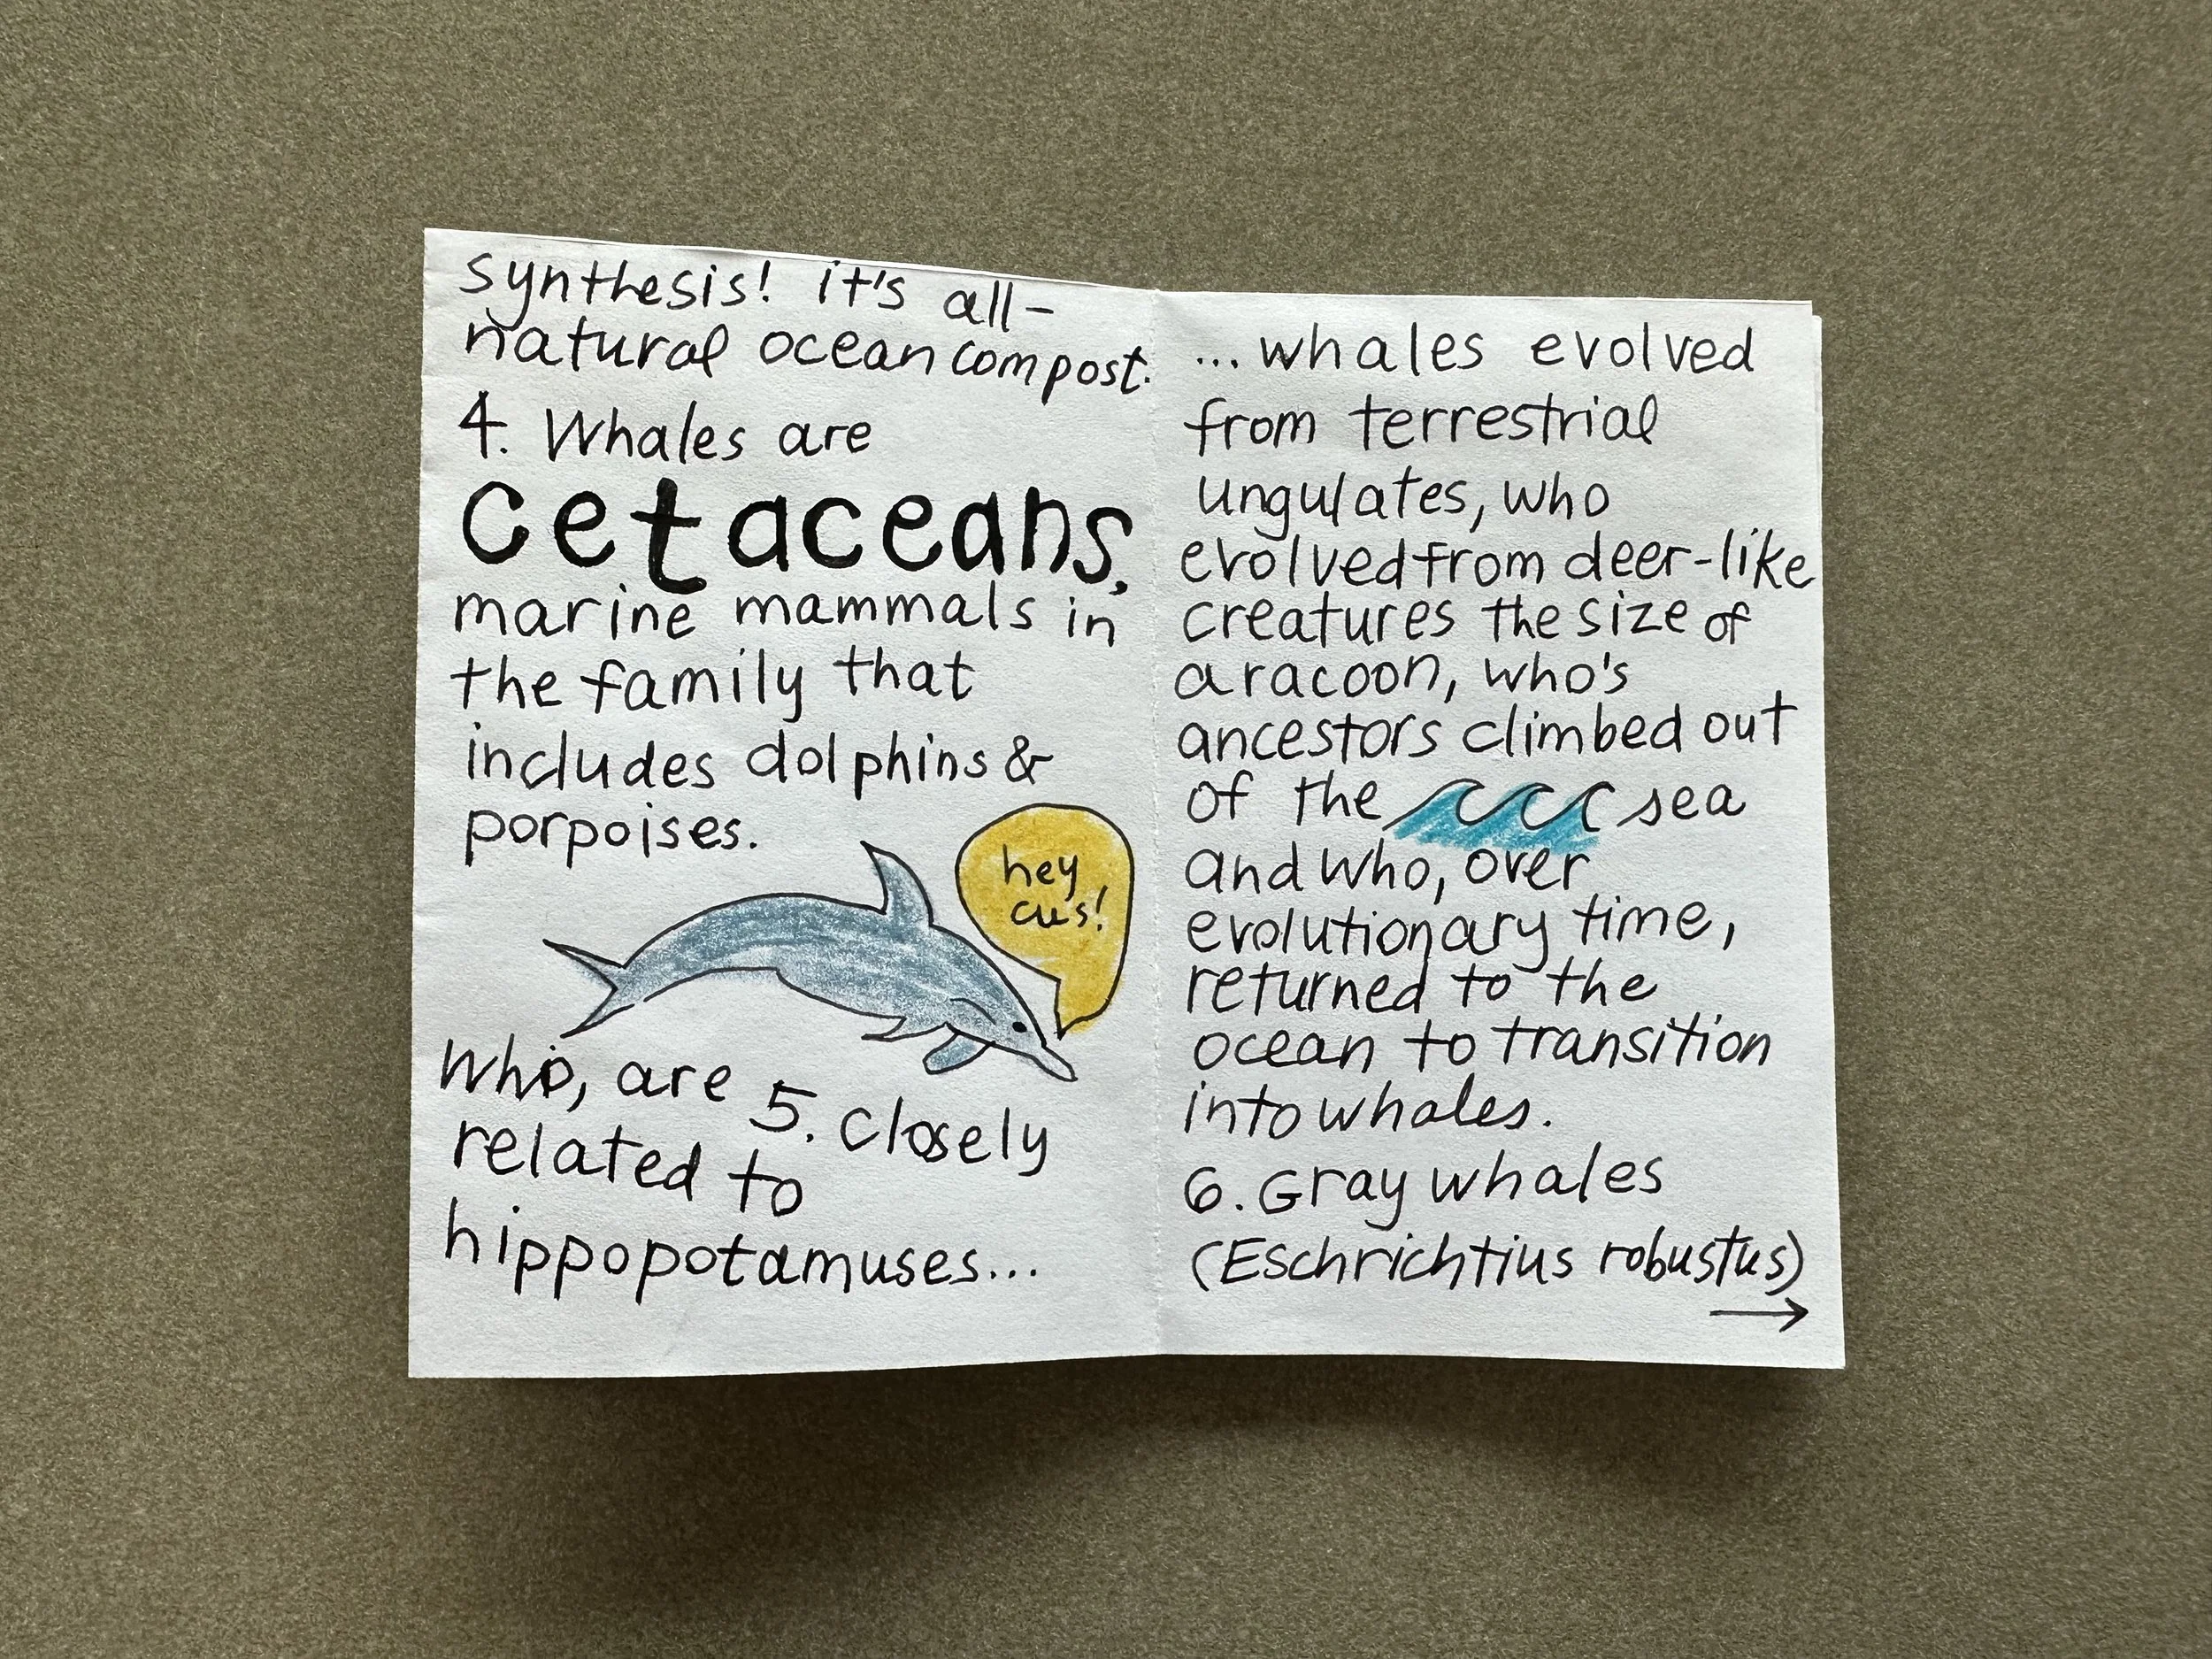 synthesis! it's all-
natural ocean compost.
4. Whales are
cetaceans,
marine mammals in
the family that
includes dolphins &
porpoises.
hey
cus!
Who, are 5. closely
related to
hippopotamuses...
...whales evolved
from terrestrial
ungulates, who
evolved from deer-like
creatures the size of
a racoon, who's
ancestors climbed out
of the sea
and who, over
evolutionary time,
returned to the
ocean to transition
into whales.
6. Gray whales
(Eschrichtius robustus)
→